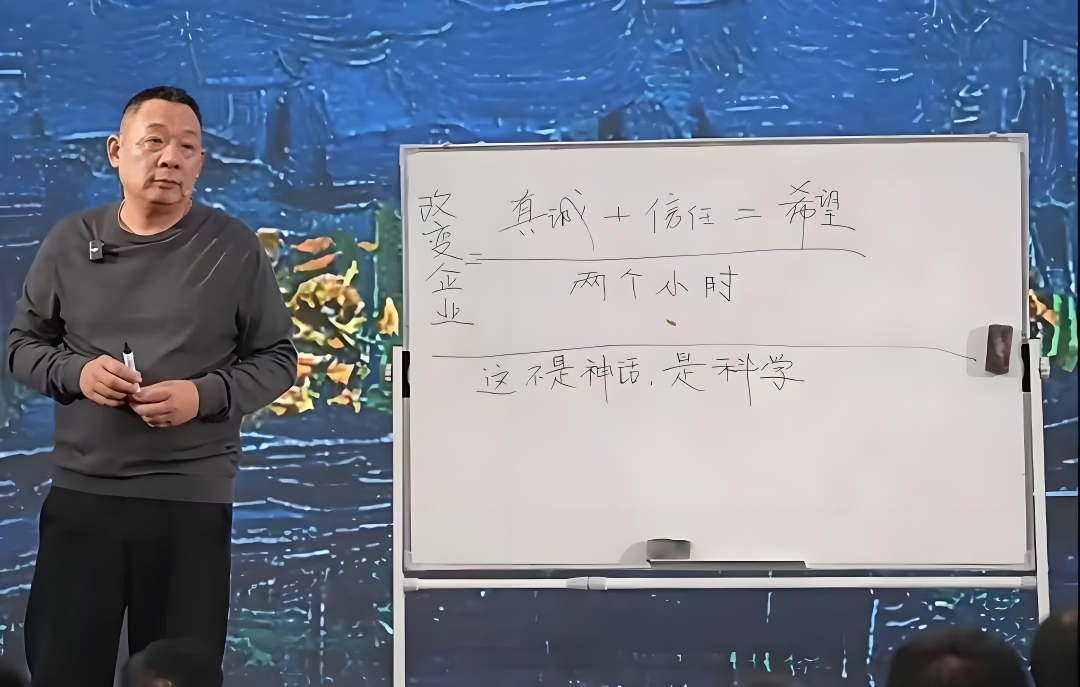 改变企业
= 真诚 + 信任 = 希望
两个小时
这不是神话，是科学